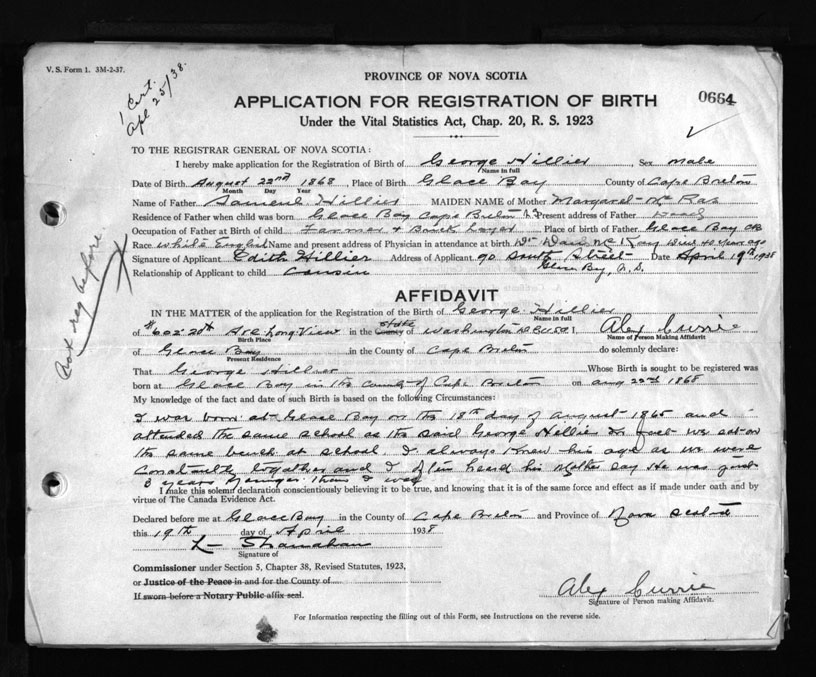 V. S. Form 1. 3M-2-37.
1 Cert.
Apl 25/38.
PROVINCE OF NOVA SCOTIA
0664
APPLICATION FOR REGISTRATION OF BIRTH
Under the Vital Statistics Act, Chap. 20, R. S. 1923
TO THE REGISTRAR GENERAL OF NOVA SCOTIA:
I hereby make application for the Registration of Birth of George Hillier, Sex male
Name in full
Date of Birth August 22nd 1868, Place of Birth Glace Bay County of Cape Breton
Month Day Year
Name of Father Samuel Hillier MAIDEN NAME of Mother Margaret McRae
Residence of Father when child was born Glace Bay Cape Breton N.S. Present address of Father Dead
Occupation of Father at Birth of child Farmer & Brick Layer Place of Birth of Father Glace Bay CB
Race White English Name and present address of Physician in attendance at birth Dr. McKay Died 40 years ago
Signature of Applicant Edith Hillier Address of Applicant 90 South Street Date April 19th 1938
Relationship of Applicant to child Cousin Glace Bay, N.S.
Not reg before
AFFIDAVIT
IN THE MATTER of the application for the Registration of the Birth of George Hillier
Name in full
of #602 20th Ave Long View in the County State of Washington Alex Currie
Birth Place Name of Person Making Affidavit
of Glace Bay in the County of Cape Breton do solemnly declare:
Present Residence
That George Hillier Whose Birth is sought to be registered was
born at Glace Bay in the County of Cape Breton on Aug 22nd 1868
My knowledge of the fact and date of such Birth is based on the following Circumstances:
I was born at Glace Bay on the 18th day of August 1865 and
attended the same school as the said George Hillier In fact we sat on
the same bench at school. I always knew his age as we were
Constantly together and I often heard his Mother say He was just
3 years younger than I was
I make this solemn declaration conscientiously believing it to be true, and knowing that it is of the same force and effect as if made under oath and by
virtue of The Canada Evidence Act.
Declared before me at Glace Bay in the County of Cape Breton and Province of Nova Scotia
this 19th day of April 1938
L Shanahan
Signature of
Commissioner under Section 5, Chapter 38, Revised Statutes, 1923,
or Justice of the Peace in and for the County of
If sworn before a Notary Public affix seal.
Alex Currie
Signature of Person making Affidavit.
For Information respecting the filling out of this Form, see Instructions on the reverse side.